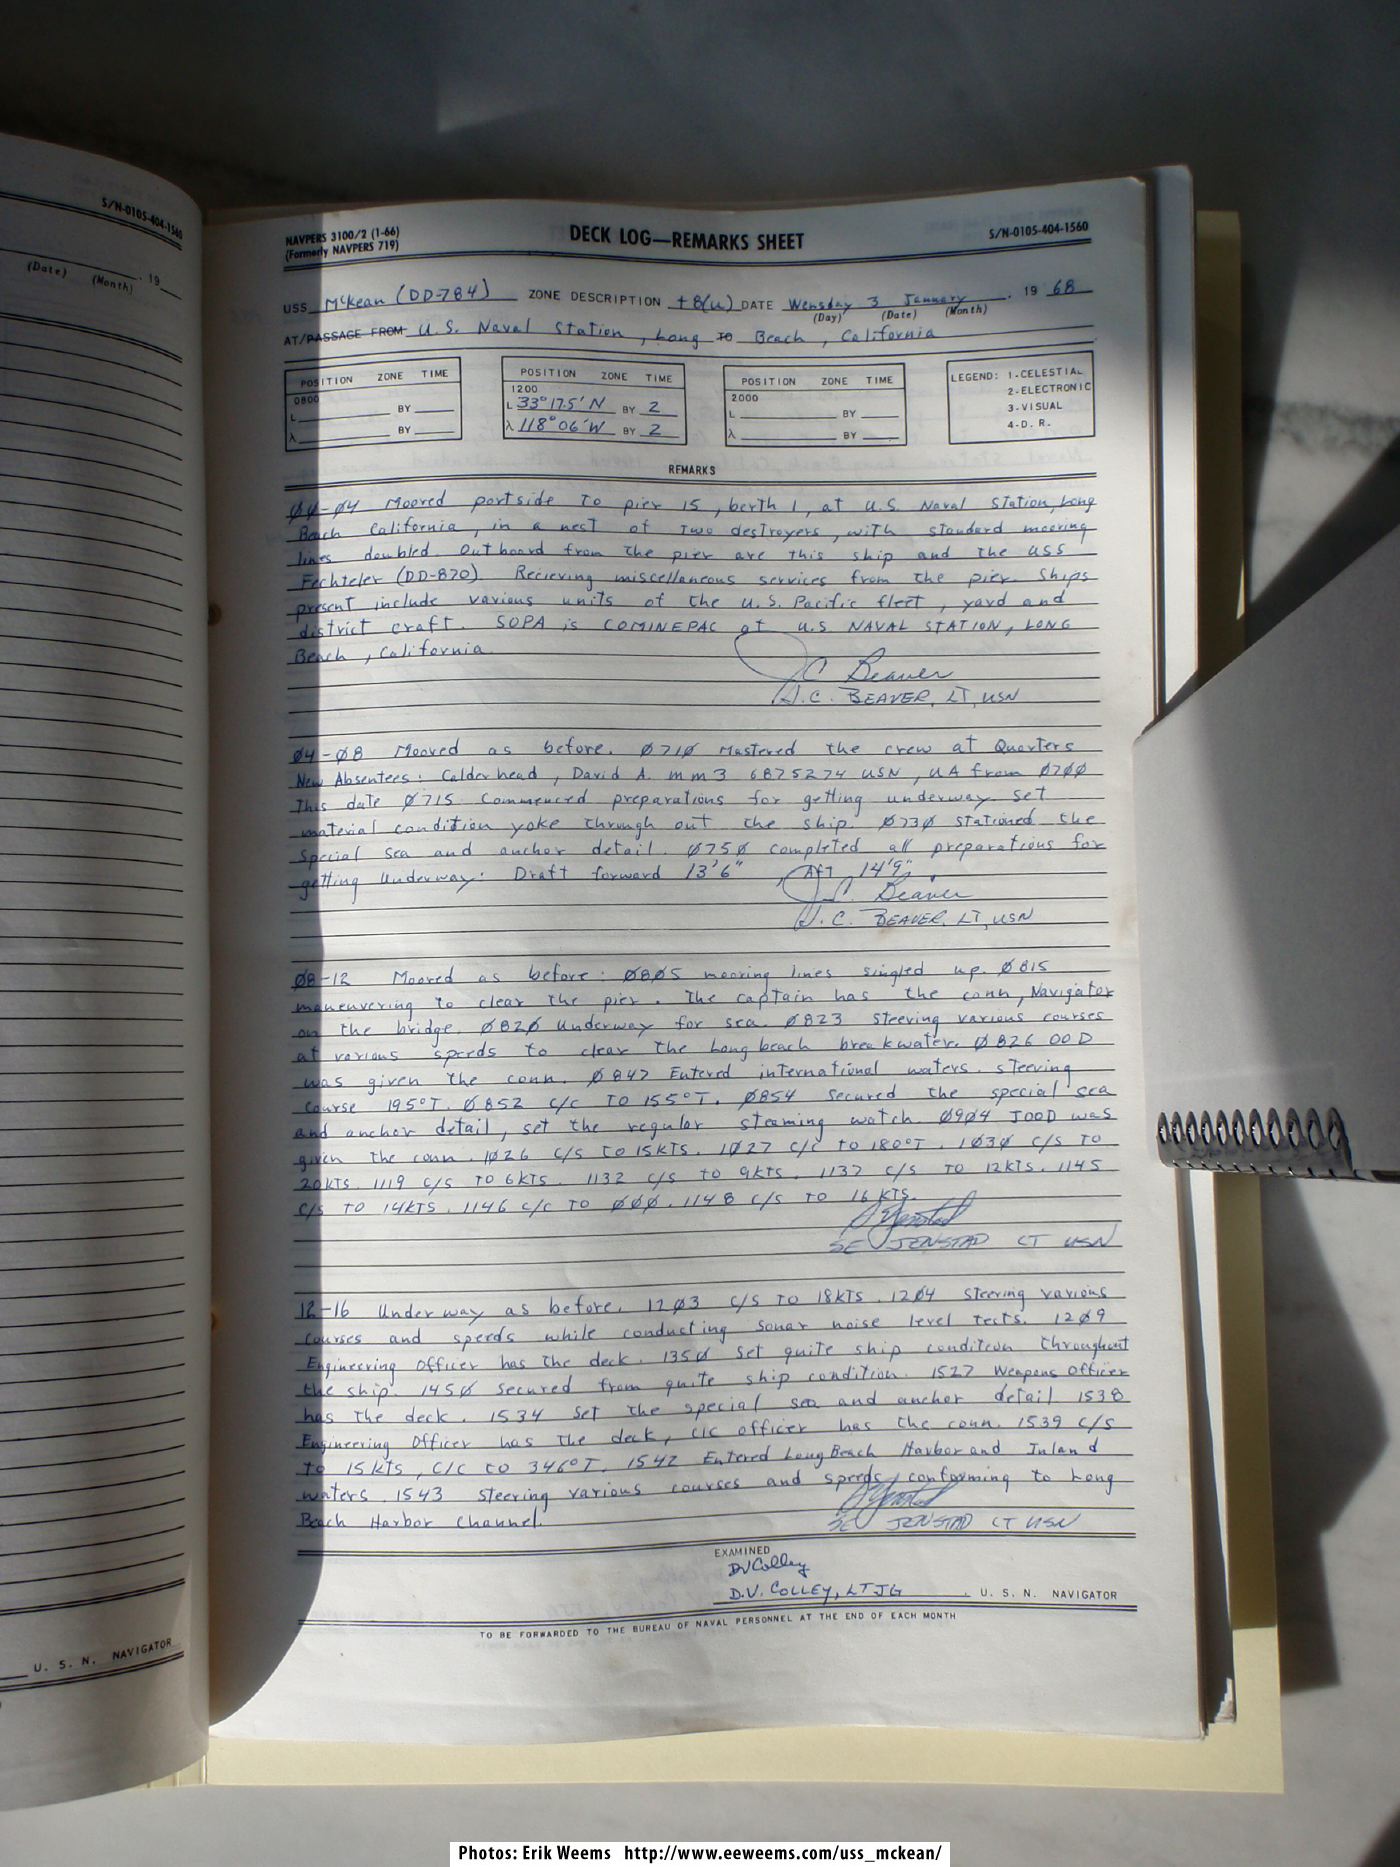 S/N-0105-404-1560
(Date) (Month) 19
U. S. N. NAVIGATOR
NAVPERS 3100/2 (1-66)
(Formerly NAVPERS 719)
DECK LOG—REMARKS SHEET
S/N-0105-404-1560
USS McKean (DD-784) ZONE DESCRIPTION +8(u) DATE Wensday 3 January, 19 68
(Day) (Date) (Month)
AT/PASSAGE FROM U.S. Naval Station, Long TO Beach, California
POSITION ZONE TIME
0800
L BY
λ BY
POSITION ZONE TIME
1200
L 33° 17.5' N BY 2
λ 118° 06' W BY 2
POSITION ZONE TIME
2000
L BY
λ BY
LEGEND: 1-CELESTIAL
2-ELECTRONIC
3-VISUAL
4-D. R.
REMARKS
ØØ-Ø4 Moored portside To pier 15, berth 1, at U.S. Naval Station, Long
Beach California, in a nest of Two destroyers, with standard mooring
lines doubled. Outboard from The pier are this ship and the USS
Fechteler (DD-870). Recieving miscellaneous services from the pier. Ships
present include various units of the U.S. Pacific fleet, yard and
district craft. SOPA is COMINEPAC at U.S NAVAL STATION, LONG
Beach, California
J.C. Beaver
J.C. BEAVER, LT, USN
Ø4-Ø8 Moored as before. Ø71Ø Mastered the crew at Quarters
New Absentees: Calderhead, David A. MM3 6875274 USN, UA from Ø7ØØ
This date Ø715 Commenced preparations for getting underway. Set
material condition yoke through out the ship. Ø73Ø Stationed the
Special Sea and anchor detail. Ø75Ø completed all preparations for
getting Underway: Draft forward 13'6", Aft 14'9".
J.C. Beaver
J.C. BEAVER, LT, USN
Ø8-12 Moored as before: Ø8Ø5 mooring lines singled up. Ø815
maneuvering to clear the pier. The captain has the conn, Navigator
on the bridge. Ø82Ø Underway for sea. Ø823 Steering various courses
at various speeds to clear the Longbeach breakwater. Ø826 OOD
was given the conn. Ø847 Entered international waters. steering
course 195°T. Ø852 c/c TO 155°T. Ø854 secured the special sea
and anchor detail, set the regular steaming watch. Ø9Ø4 JOOD was
given the conn. 1Ø26 c/s to 15KTS. 1Ø27 c/c to 180°T. 1Ø3Ø c/s TO
20KTS. 1119 c/s TO 6KTS. 1132 c/s to 9KTS. 1137 c/s TO 12KTS. 1145
c/s TO 14KTS. 1146 c/c TO ØØØ. 1148 c/s TO 16 KTS.
SE JENSTAD LT USN
12-16 Underway as before. 12Ø3 c/s TO 18KTS. 12Ø4 steering various
courses and speeds while conducting Sonar noise level tests. 12Ø9
Engineering Officer has the deck. 135Ø set quite ship condition throughout
the ship. 145Ø secured from quite ship condition. 1527 Weapons Officer
has the deck. 1534 Set the special sea and anchor detail 1538
Engineering Officer has the deck, CIC officer has the conn. 1539 c/s
TO 15KTS, c/c to 346°T. 1542 Entered Long Beach Harbor and Inland
waters. 1543 steering various courses and speeds conforming to Long
Beach Harbor Channel.
SE JENSTAD LT USN
EXAMINED
DVColley
D.V. COLLEY, LTJG, U. S. N. NAVIGATOR
TO BE FORWARDED TO THE BUREAU OF NAVAL PERSONNEL AT THE END OF EACH MONTH
Photos: Erik Weems http://www.eeweems.com/uss_mckean/